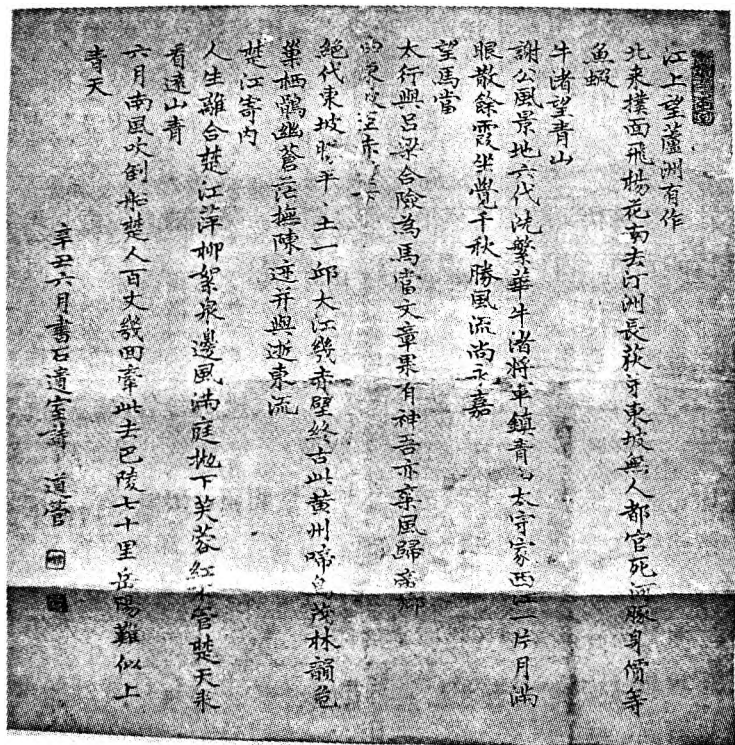 江上望蘆洲有作
北來撲面飛楊花南去汀洲長荻牙東坡無人都官死河豚身價等
魚蝦
牛渚望青山
謝公風景地六代洗繁華牛渚將軍鎮青山太守家西江一片月滿
眼散餘霞坐覺千秋勝風流尚永嘉
望馬當
太行與呂梁合險為馬當文章果有神吾亦乘風歸
東坡赤
絕代東坡平、土一邱大江幾赤壁終古此黃州啼鳥茂林韻危
巢栖鶻幽蒼茫撫陳迹并與逝東流
楚江寄內
人生離合楚江萍柳絮泉邊風滿庭拋下芙蓉紅不管楚天來
看遠山青
六月南風吹倒船楚人百丈幾回牽此去巴陵七十里岳陽難似上
青天
辛丑六月書石遺室詩 道管